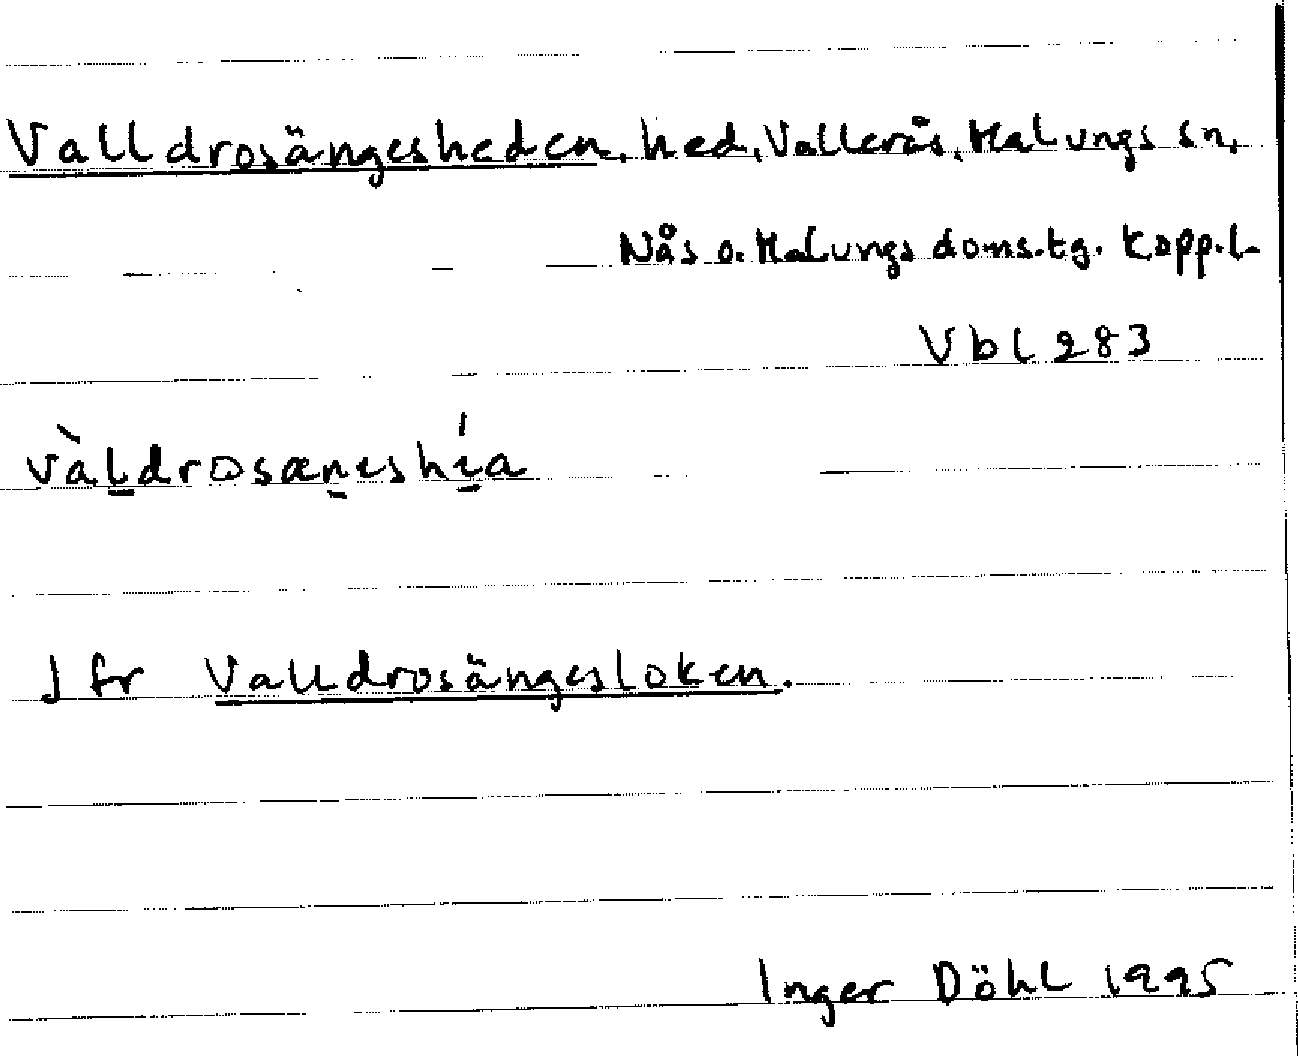 Valldrosängesheden, hed, Vallerås, Malungs sn,
Nås o. Malungs doms.tg. Kopp.l.
Vbl 283
vàl̲drosæn̲eshí̲a
Jfr Valldrosängesloken.
Inger Döhl 1995